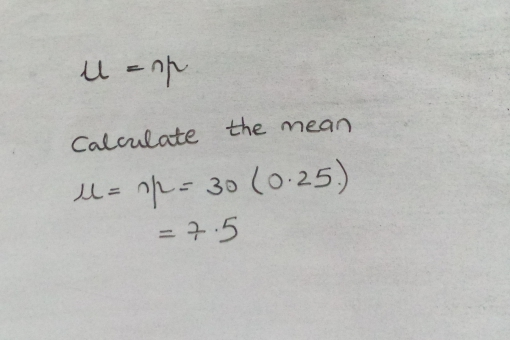 μ = np
Calculate the mean
μ = np = 30 (0.25)
= 7.5